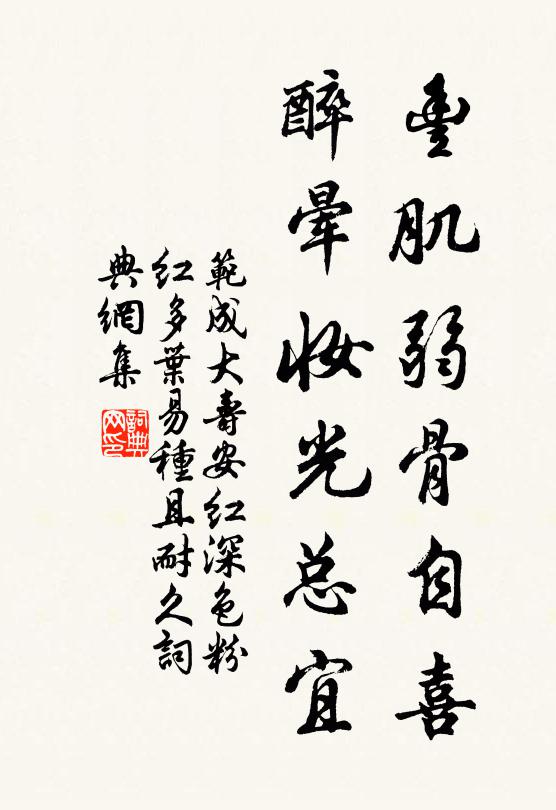 豊肌弱骨自喜
醉暈妝光总宜
範成大壽安红深色粉
红多葉易種且耐久詞
典網集
詞典
网印